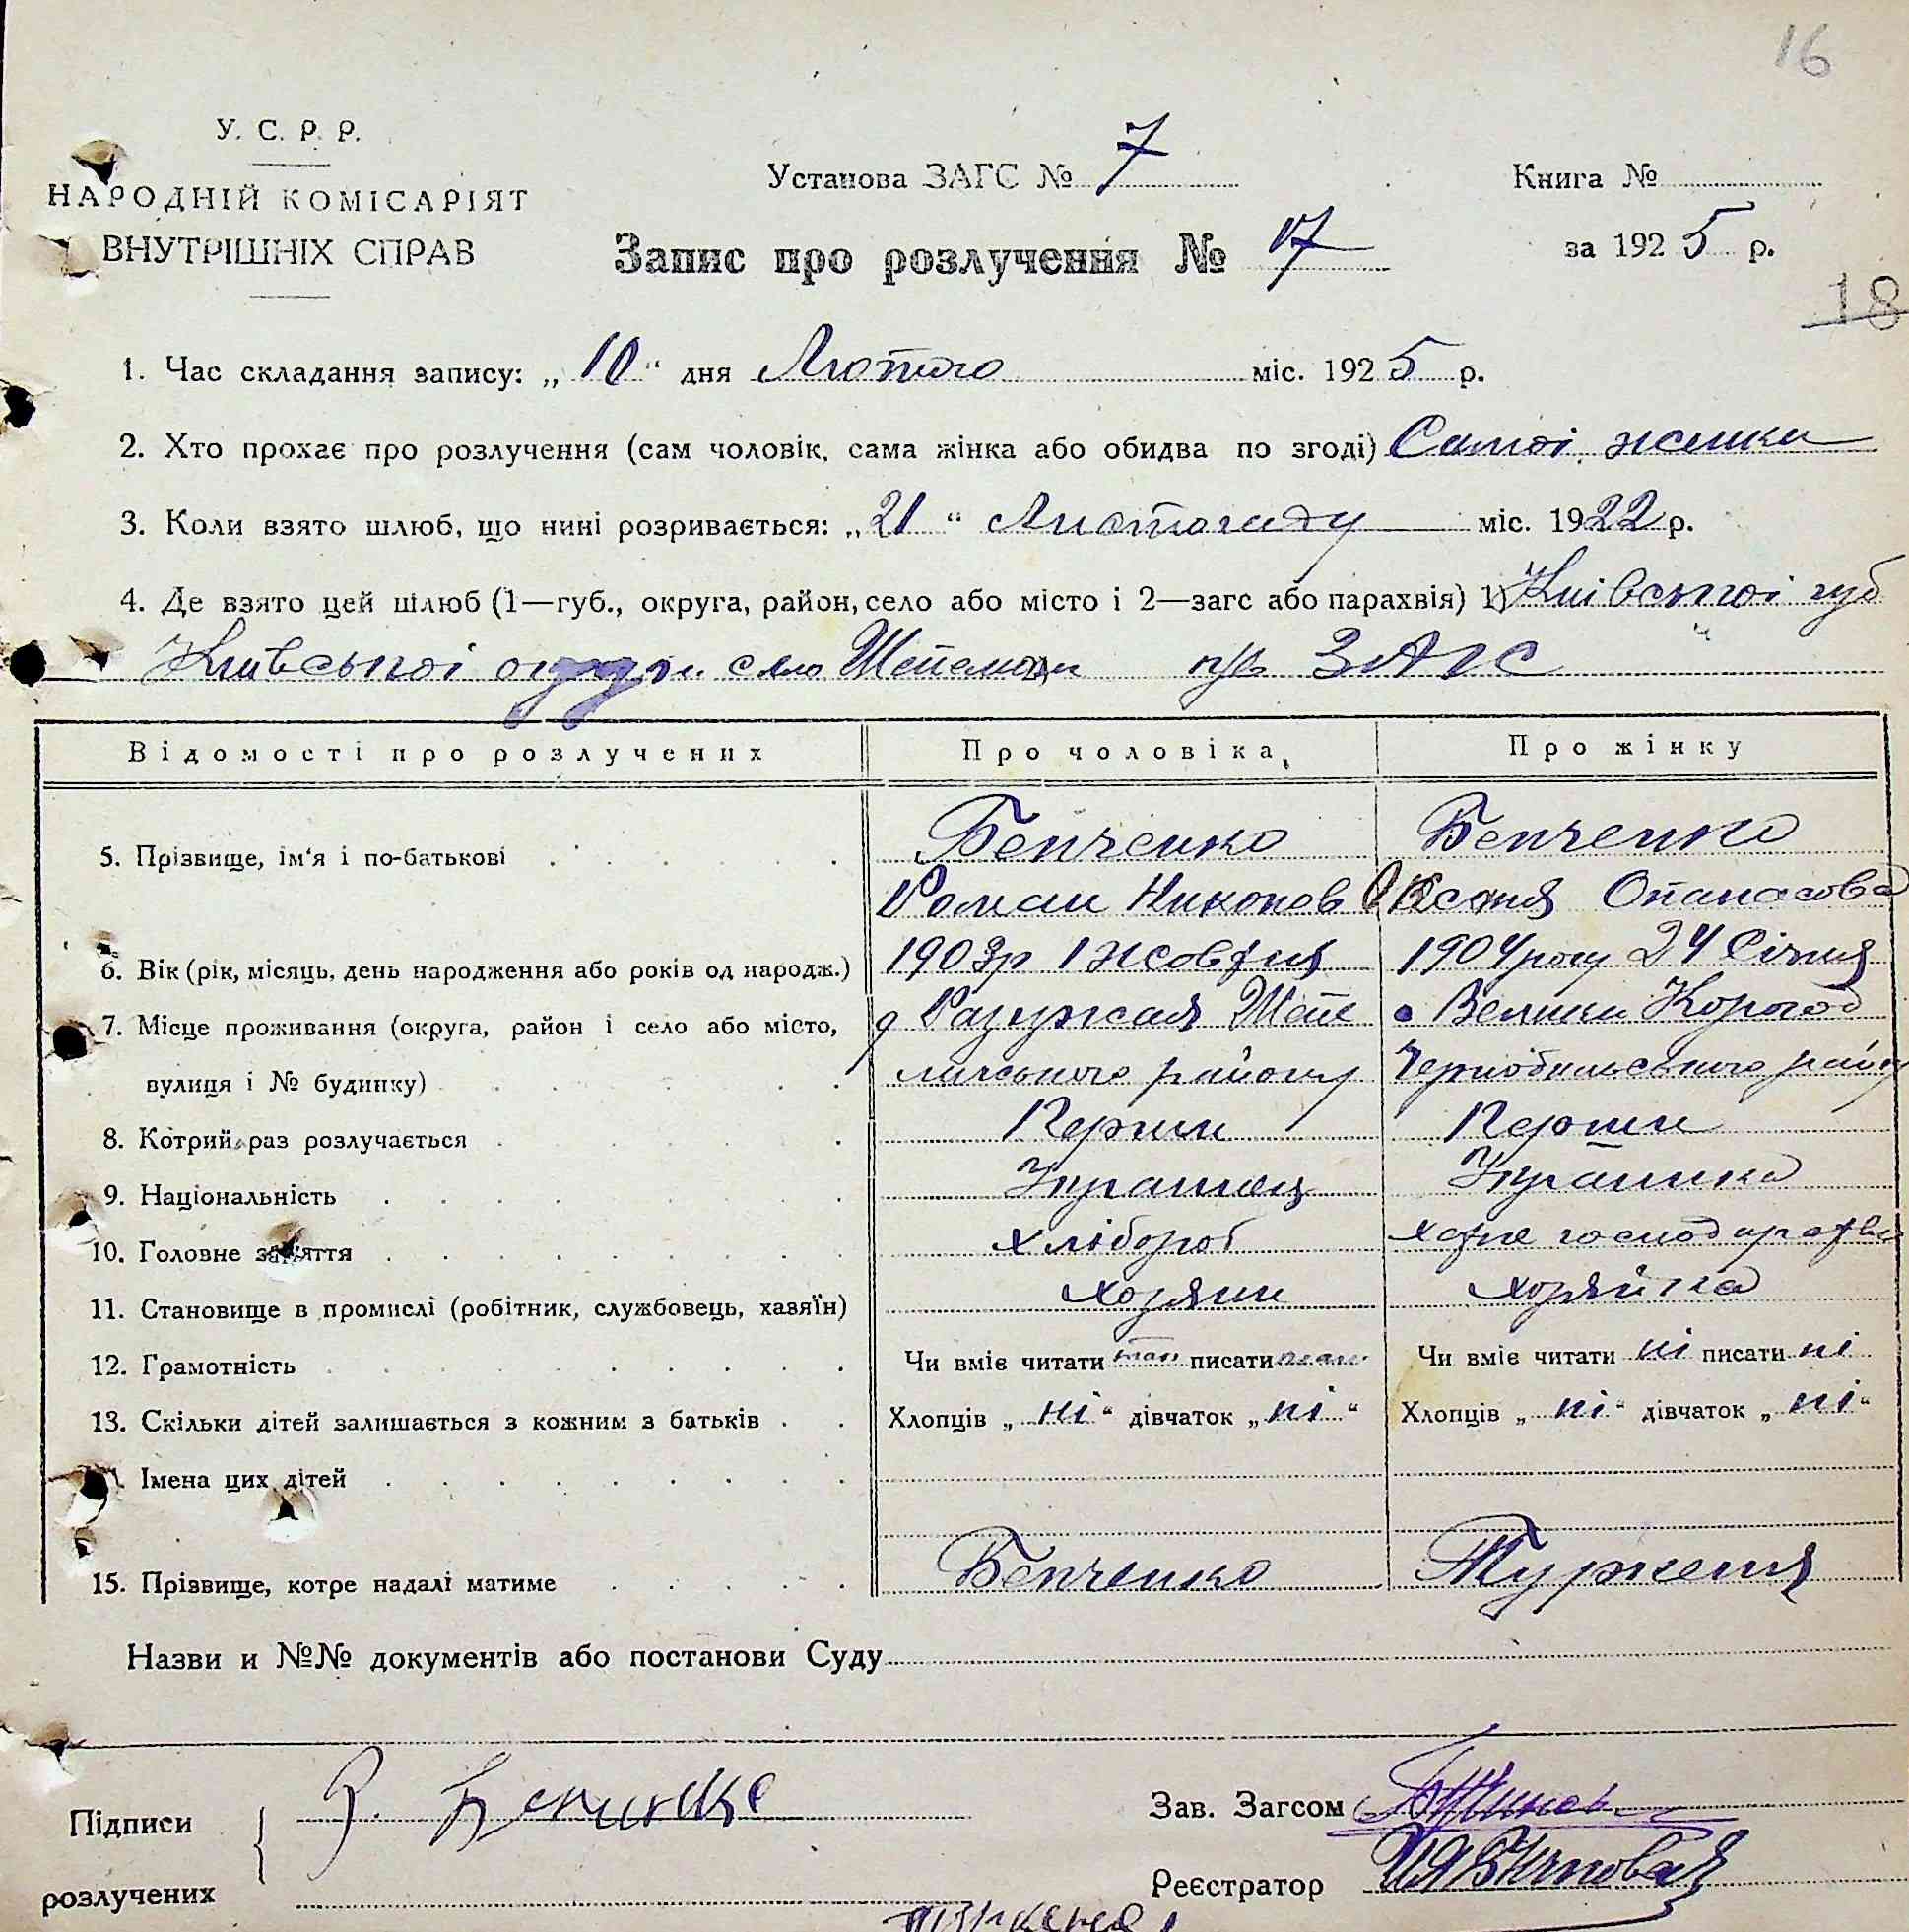 16
У. С. Р. Р.
НАРОДНІЙ КОМІСАРІЯТ
ВНУТРІШНІХ СПРАВ
Установа ЗАГС № 7
Книга №
Запис про розлучення № 17
за 1925 р.
18
1. Час складання запису: „10“ дня Лютого міс. 1925 р.
2. Хто прохає про розлучення (сам чоловік, сама жінка або обидва по згоді) Самоі жинки
3. Коли взято шлюб, що нині розривається: „21“ Листопаду міс. 1922 р.
4. Де взято цей шлюб (1—губ., округа, район, село або місто і 2—загс або парахвія) 1) Киівськоі губ
Киівськоі округи село Шепеличи ЗАГС
Відомості про розлучених Про чоловіка Про жінку
5. Прізвище, ім‘я і по-батькові Бенченко Бенченко
Роман Никонов Оксана Опанасова
6. Вік (рік, місяць, день народження або років од народж.) 1903р 1 жовтня 1904 року 24 Січня
7. Місце проживання (округа, район і село або місто, Шепе Велики Корогод
вулиця і № будинку) личського району Чернобильського району
8. Котрий раз розлучається Перши Перши
9. Національність Украінец Украінка
10. Головне заняття хлібороб хатне господарство
11. Становище в промислі (робітник, службовець, хазяїн) хозяин хозяйка
12. Грамотність Чи вміє читати так писати так Чи вміє читати ні писати ні
13. Скільки дітей залишається з кожним з батьків Хлопців „ні“ дівчаток „ні“ Хлопців „ні“ дівчаток „ні“
Імена цих дітей
15. Прізвище, котре надалі матиме Бенченко Туркеня
Назви и №№ документів або постанови Суду
Підписи Р. Бенченко Зав. Загсом
розлучених Реєстратор